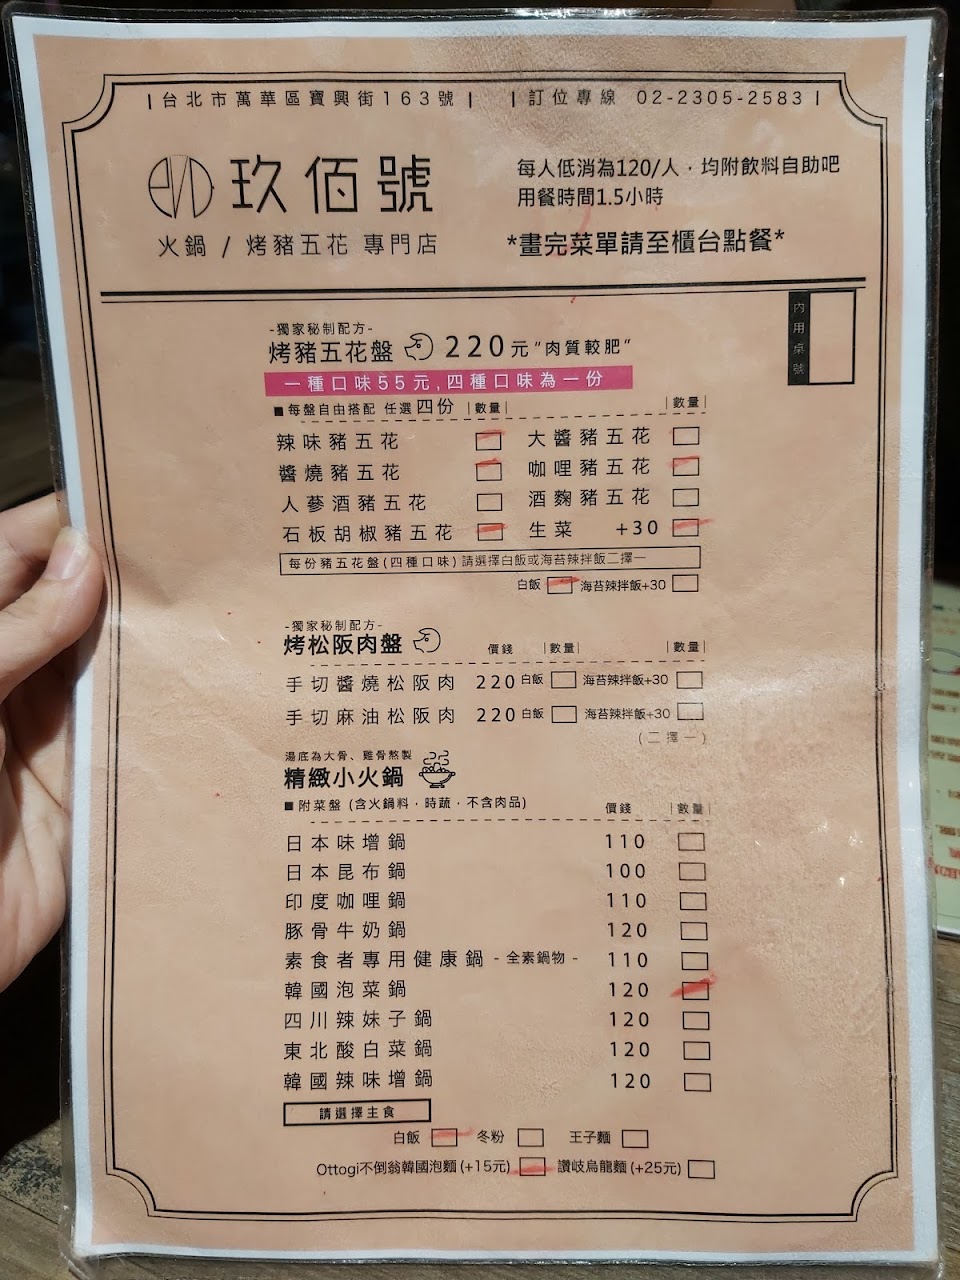 |台北市萬華區寶興街163號|
|訂位專線 02-2305-2583|
玖佰號
火鍋 / 烤豬五花 專門店
每人低消為120/人．均附飲料自助吧
用餐時間1.5小時
*畫完菜單請至櫃台點餐*
內用桌號
-獨家秘制配方-
烤豬五花盤 220元"肉質較肥"
一種口味55元,四種口味為一份
■每盤自由搭配 任選四份 |數量| |數量|
辣味豬五花 大醬豬五花
醬燒豬五花 咖哩豬五花
人蔘酒豬五花 酒麴豬五花
石板胡椒豬五花 生菜 +30
每份豬五花盤(四種口味)請選擇白飯或海苔辣拌飯二擇一
白飯 海苔辣拌飯+30
-獨家秘制配方-
烤松阪肉盤 價錢 |數量| |數量|
手切醬燒松阪肉 220 白飯 海苔辣拌飯+30
手切麻油松阪肉 220 白飯 海苔辣拌飯+30
(二擇一)
湯底為大骨、雞骨熬製
精緻小火鍋
■附菜盤 (含火鍋料．時蔬．不含肉品) 價錢 |數量|
日本味增鍋 110
日本昆布鍋 100
印度咖哩鍋 110
豚骨牛奶鍋 120
素食者專用健康鍋 - 全素鍋物 - 110
韓國泡菜鍋 120
四川辣妹子鍋 120
東北酸白菜鍋 120
韓國辣味增鍋 120
請選擇主食
白飯 冬粉 王子麵
Ottogi不倒翁韓國泡麵(+15元) 讚岐烏龍麵(+25元)